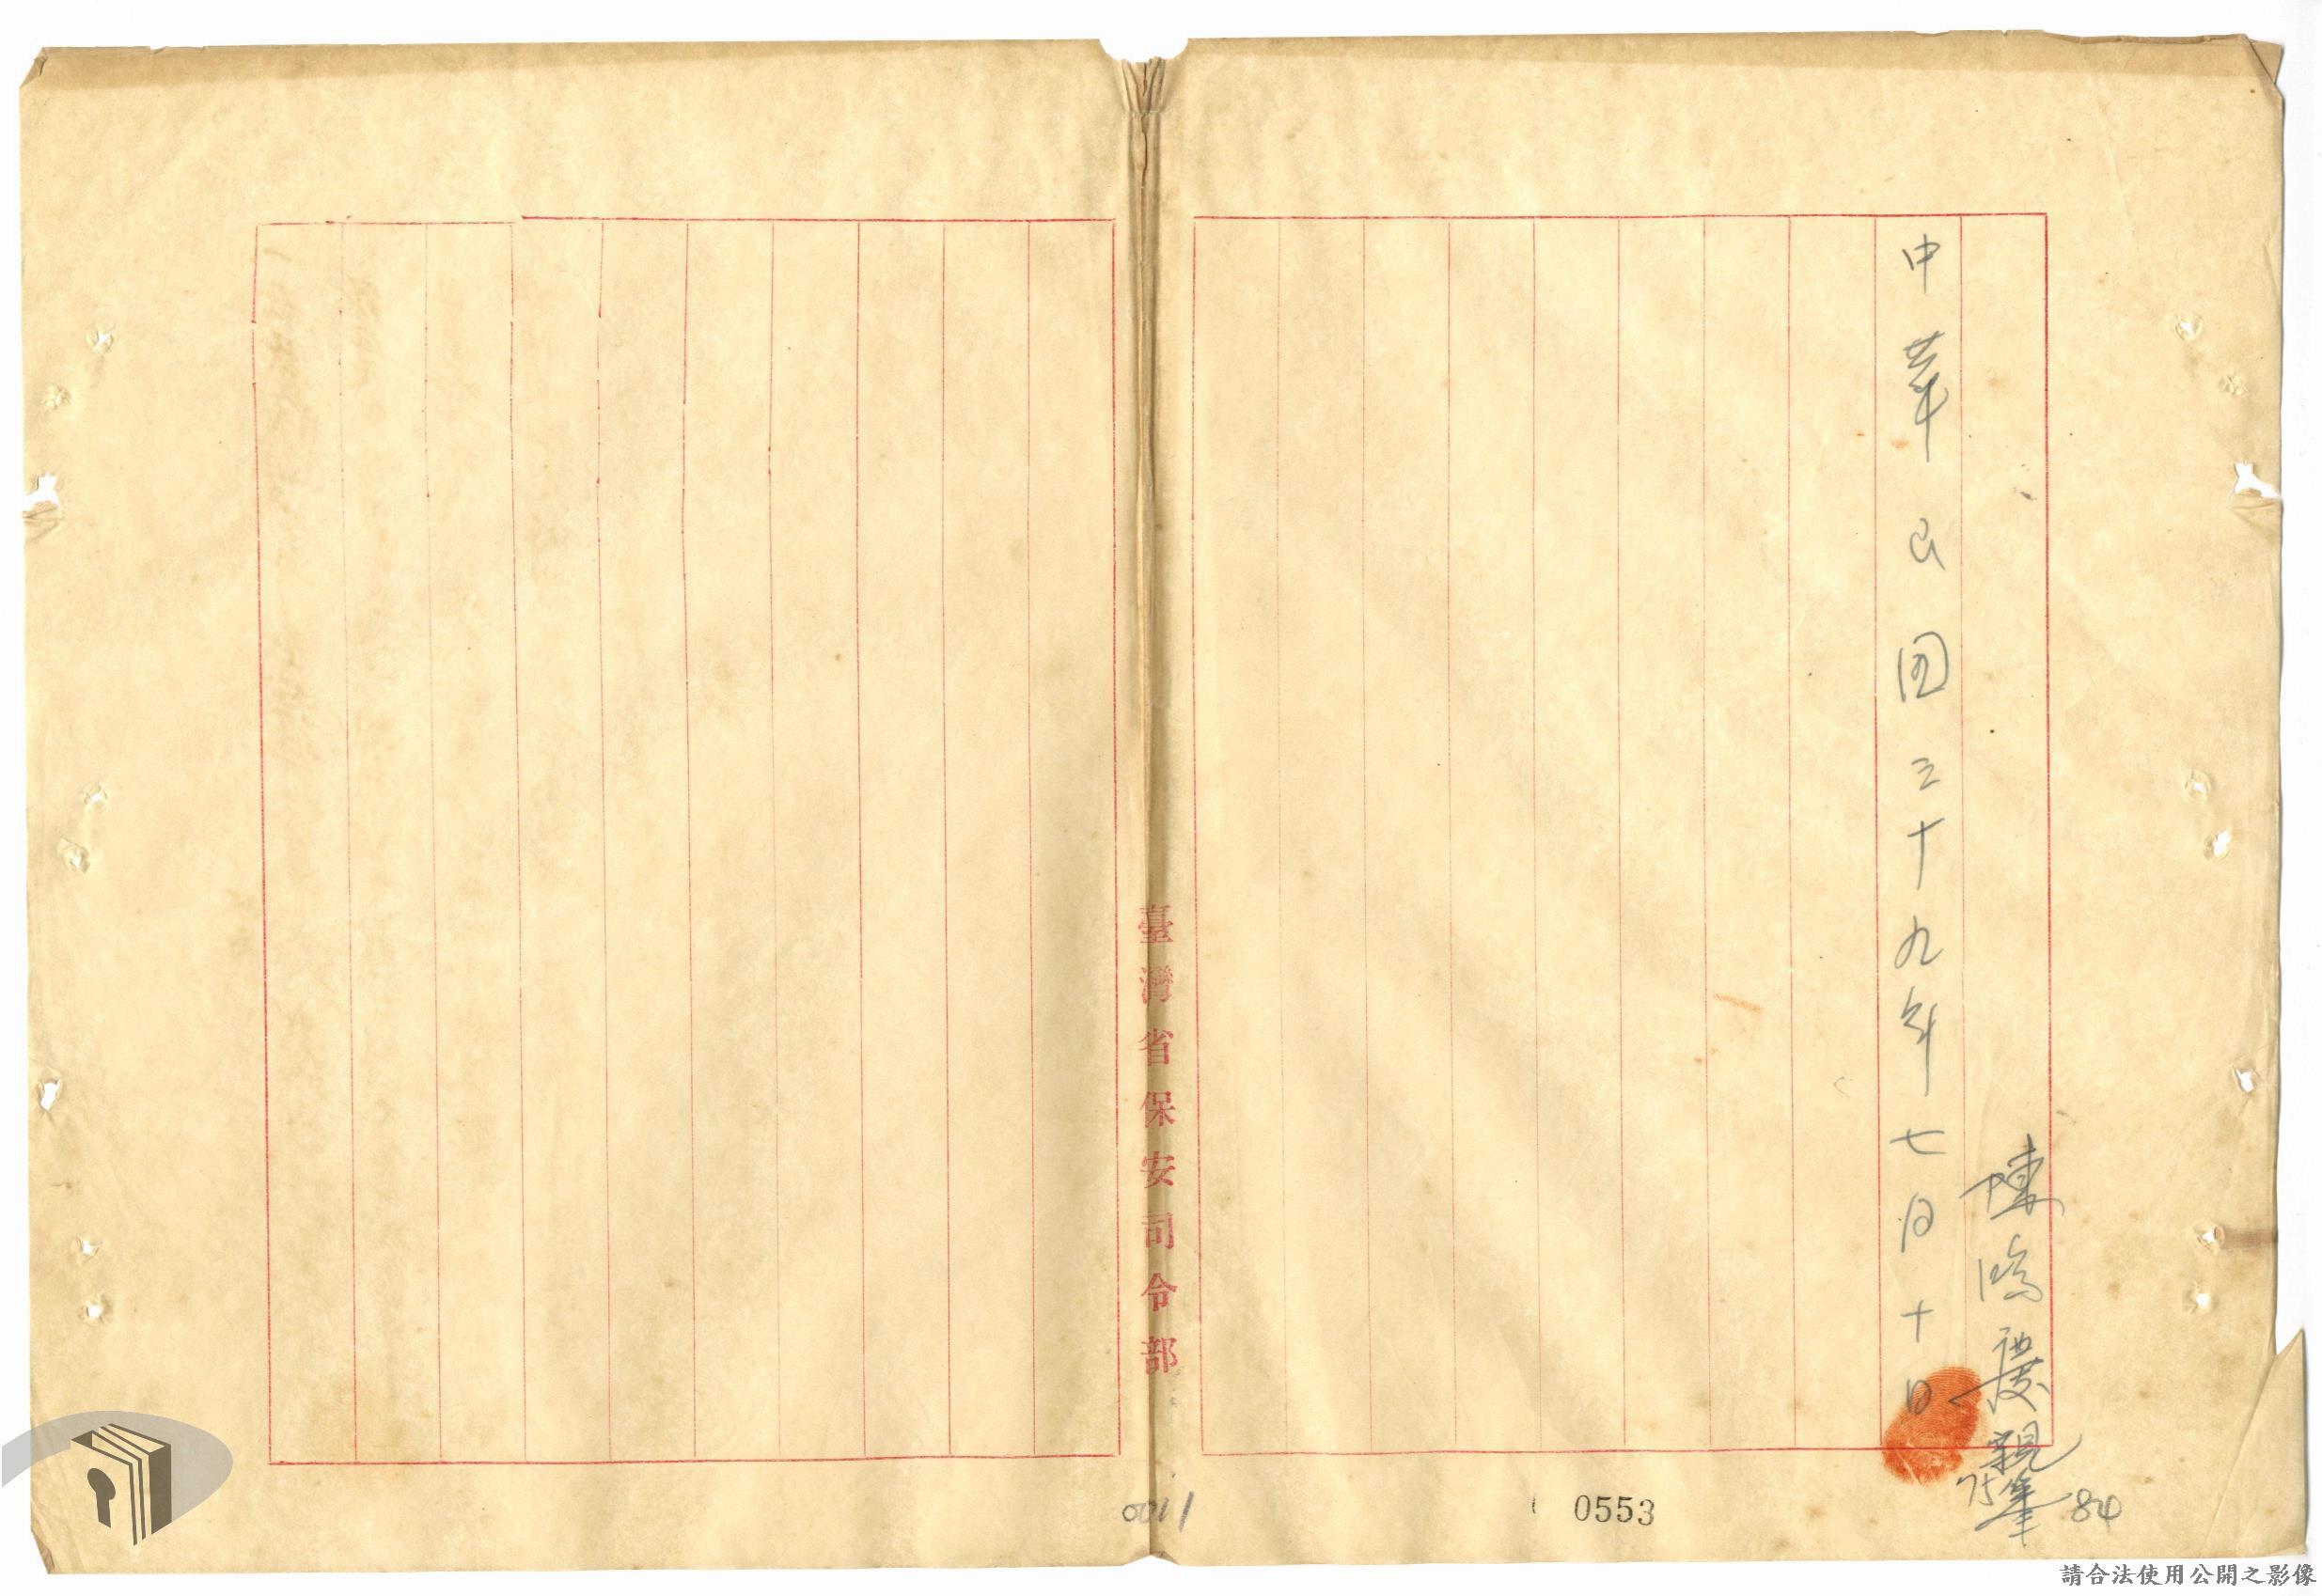 陳鴻慶親筆
中華民国三十九年七月十日
臺灣省保安司令部
0011
0553
75
84
請合法使用公開之影像